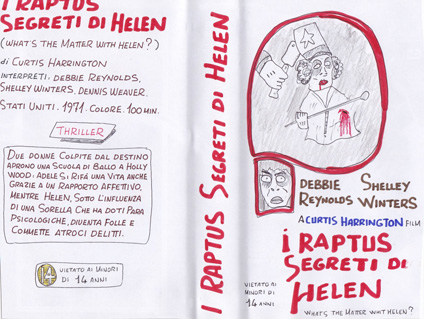 I RAPTUS
SEGRETI DI HELEN
(WHAT'S THE MATTER WITH HELEN?)
di CURTIS HARRINGTON
INTERPRETI: DEBBIE REYNOLDS,
SHELLEY WINTERS, DENNIS WEAVER.
STATI UNITI. 1971. COLORE. 100 MIN.
THRILLER
DUE DONNE COLPITE DAL DESTINO
APRONO UNA SCUOLA DI BALLO A HOLLY
WOOD. ADELE SI RIFÀ UNA VITA ANCHE
GRAZIE A UN RAPPORTO AFFETTIVO,
MENTRE HELEN, SOTTO L'INFLUENZA
DI UNA SORELLA CHE HA DOTI PARA
PSICOLOGICHE, DIVENTA FOLLE E
COMMETTE ATROCI DELITTI.
14
VIETATO AI MINORI
DI 14 ANNI
I RAPTUS SEGRETI DI HELEN
DEBBIE SHELLEY
REYNOLDS WINTERS
A CURTIS HARRINGTON FILM
I RAPTUS
SEGRETI DI
HELEN
VIETATO AI
MINORI DI
14 ANNI
WHAT'S THE MATTER WHIT HELEN?